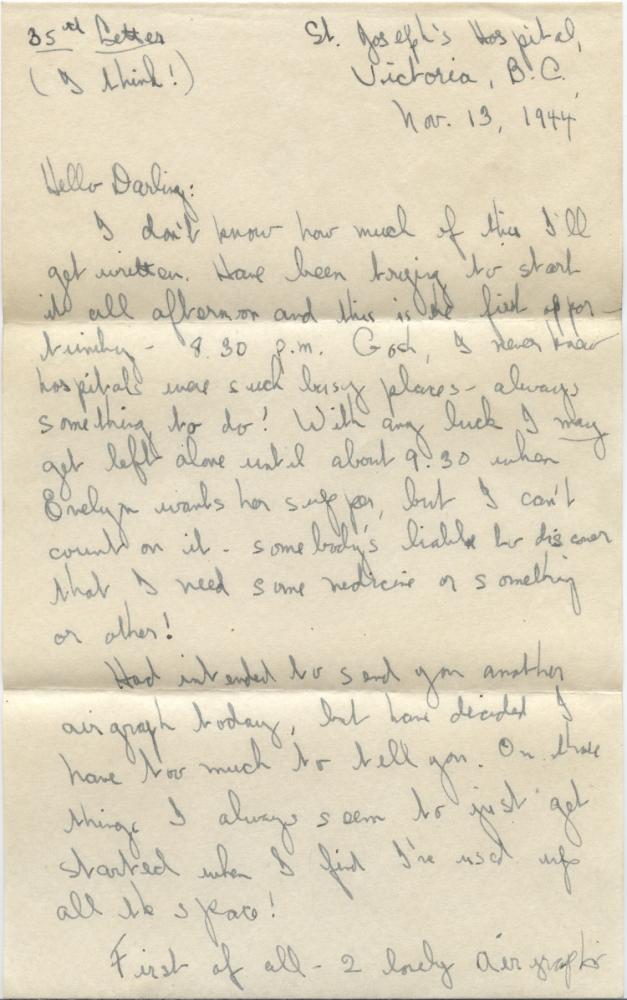 35th Letter
(I think!)
St. Joseph's Hospital,
Victoria, B.C.
Nov. 13, 1944
Hello Darling:
I don't know how much of this I'll
get written. Have been trying to start
it all afternoon and this is the first oppor-
tunity - 8.30 p.m. Gosh, I never knew
hospitals were such busy places - always
something to do! With any luck I may
get left alone until about 9.30 when
Evelyn wants her supper, but I can't
count on it - somebody's liable to discover
that I need some medicine or something
or other!
Had intended to send you another
airgraph today, but have decided I
have too much to tell you. On those
things I always seem to just get
started when I find I've used up
all the space!
First of all - 2 lovely airgraphs